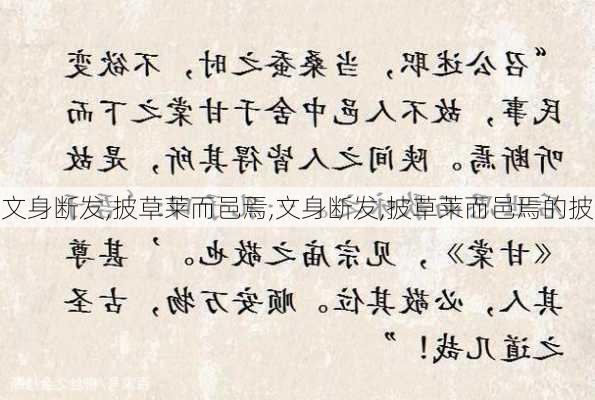 “召公述职，当桑蚕之时，不欲变
民事，故不入邑中舍于甘棠之下而
听断焉。陕间之人皆得其所，是故
文身断发,披草莱而邑焉;文身断发,披草莱而邑焉的披
《甘棠》，见宗庙之敬也。’甚尊
其人，必敬其位。顺安万物，古圣
之道几哉！”
百家号